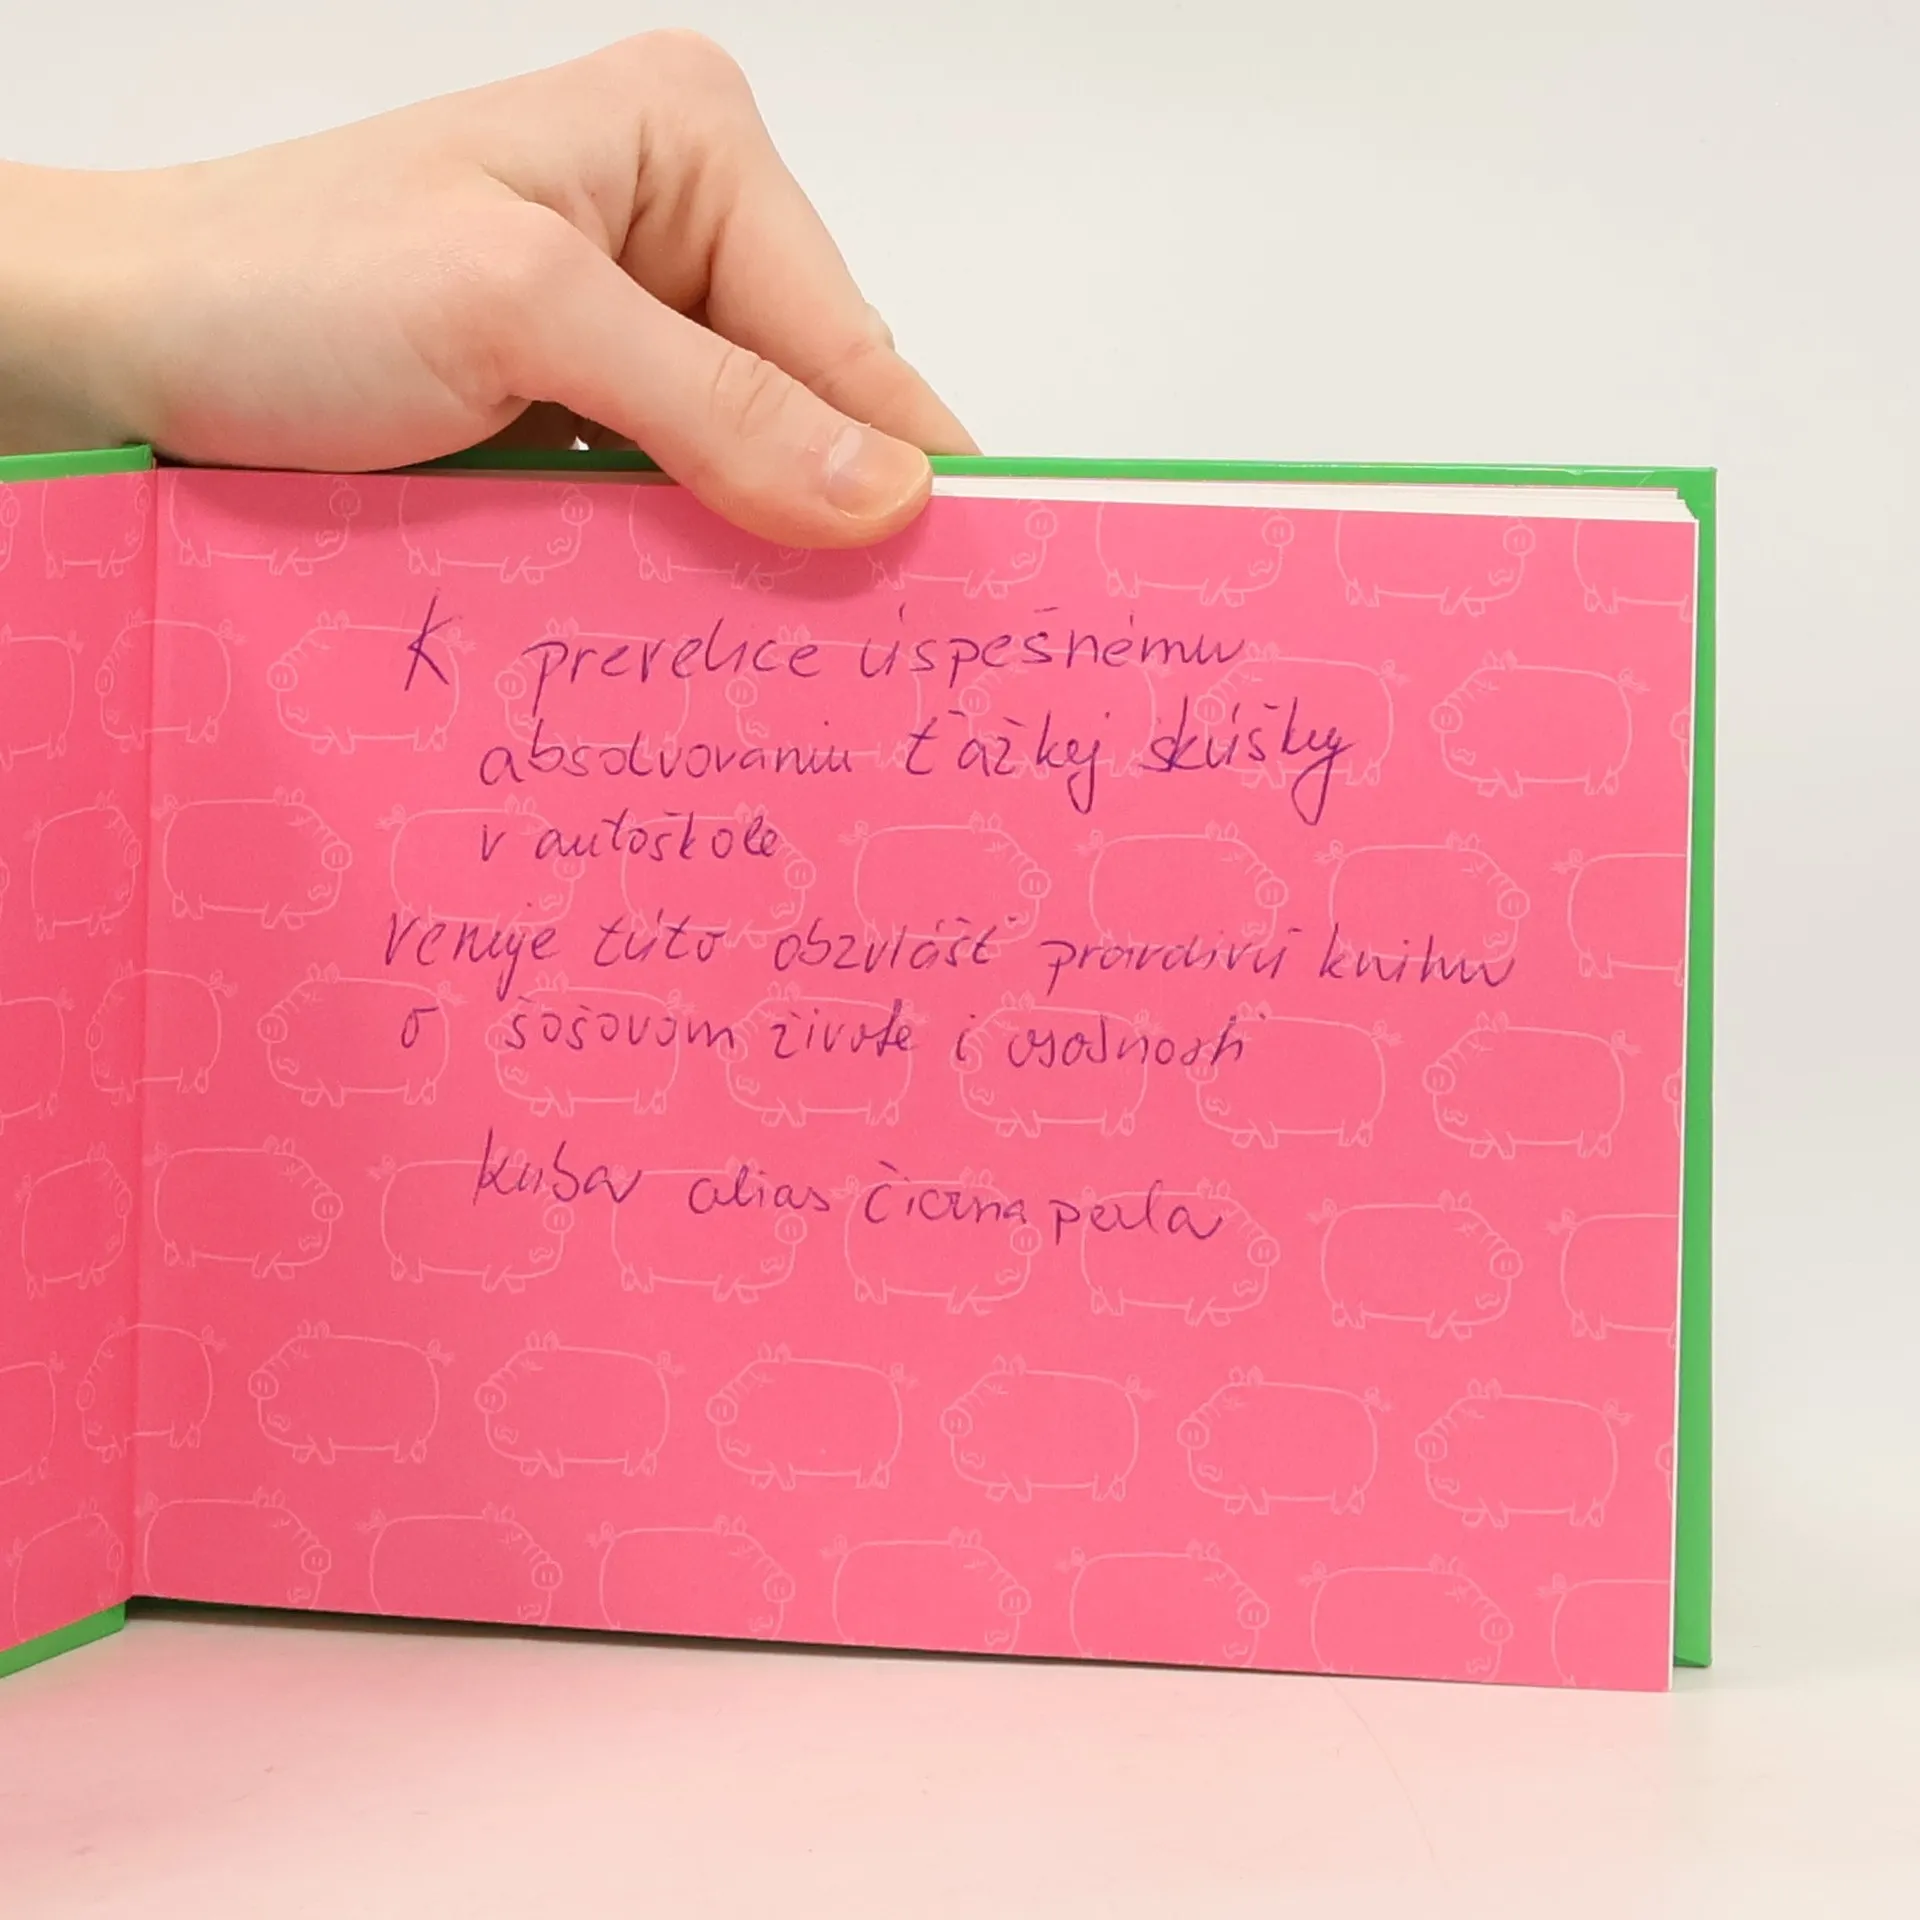 K prevelice úspešnému
absolvovaniu ťažkej skúšky
v autoškole
venuje túto obzvlášť pravdivú knihu
o šošovom živote i osobnosti
Kuba alias čierna perla